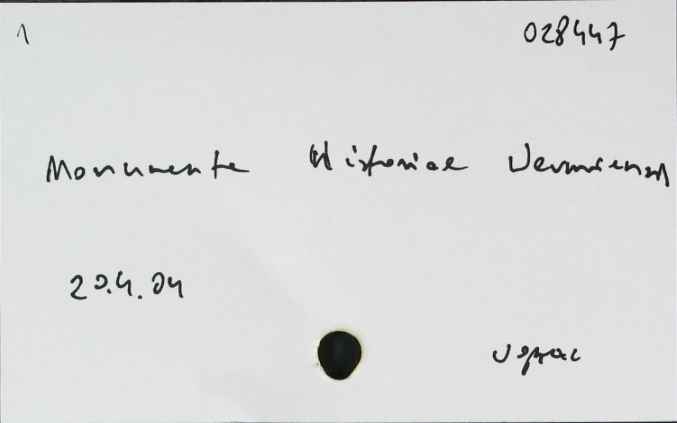 1 028447
Monumenta Historiae Warmiensis
20.4.04